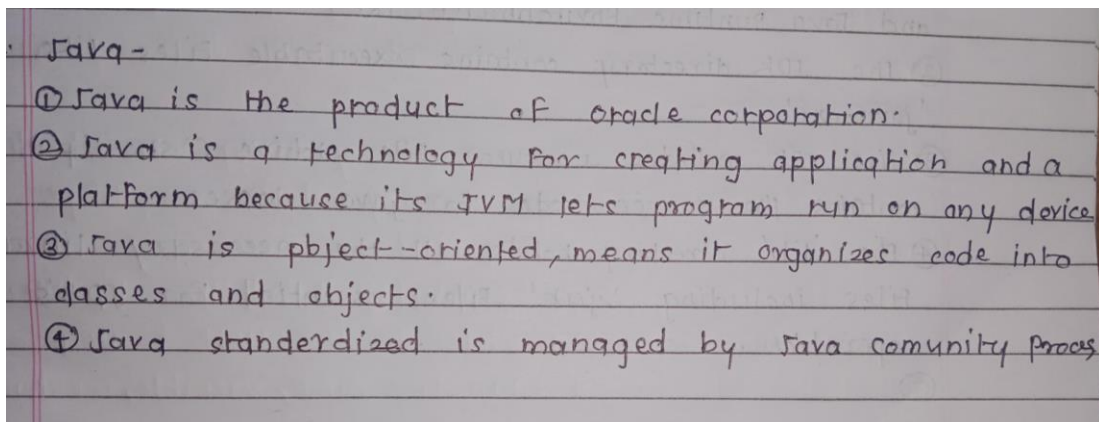 Java -
① Java is the product of oracle corporation.
② Java is a technology For creating application and a
platform because its JVM lets program run on any device
③ Java is object-oriented, means it organizes code into
classes and objects.
④ Java standerdized is managed by Java comunity proces